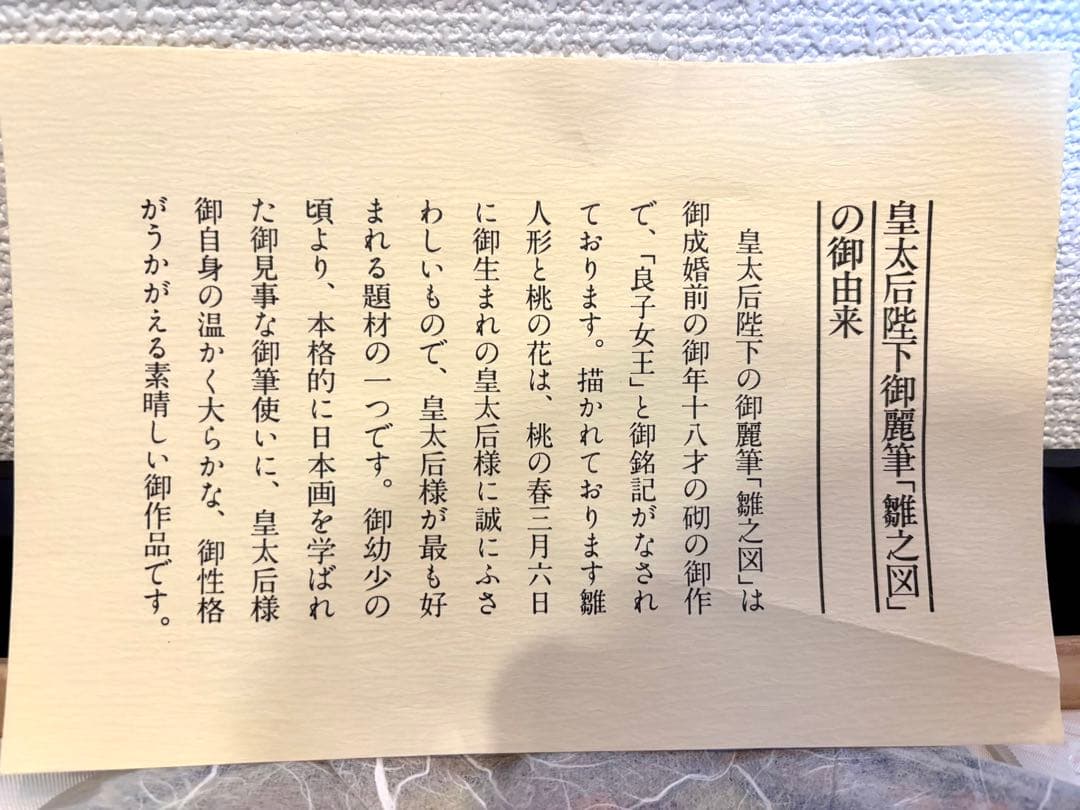 皇太后陛下御麗筆「雛之図」
の御由来
皇太后陛下の御麗筆「雛之図」は
御成婚前の御年十八才の砌の御作
で、「良子女王」と御銘記がなされ
ております。描かれております雛
人形と桃の花は、桃の春三月六日
に御生まれの皇太后様に誠にふさ
わしいもので、皇太后様が最も好
まれる題材の一つです。御幼少の
頃より、本格的に日本画を学ばれ
た御見事な御筆使いに、皇太后様
御自身の温かく大らかな、御性格
がうかがえる素晴しい御作品です。